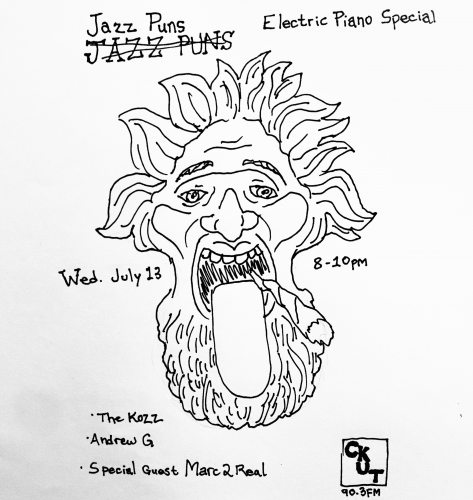 Jazz Puns
JAZZ PUNS
Electric Piano Special
Wed. July 13
8-10pm
· The Kozz
· Andrew G
· Special Guest Marc 2 Real
CKUT
90.3FM